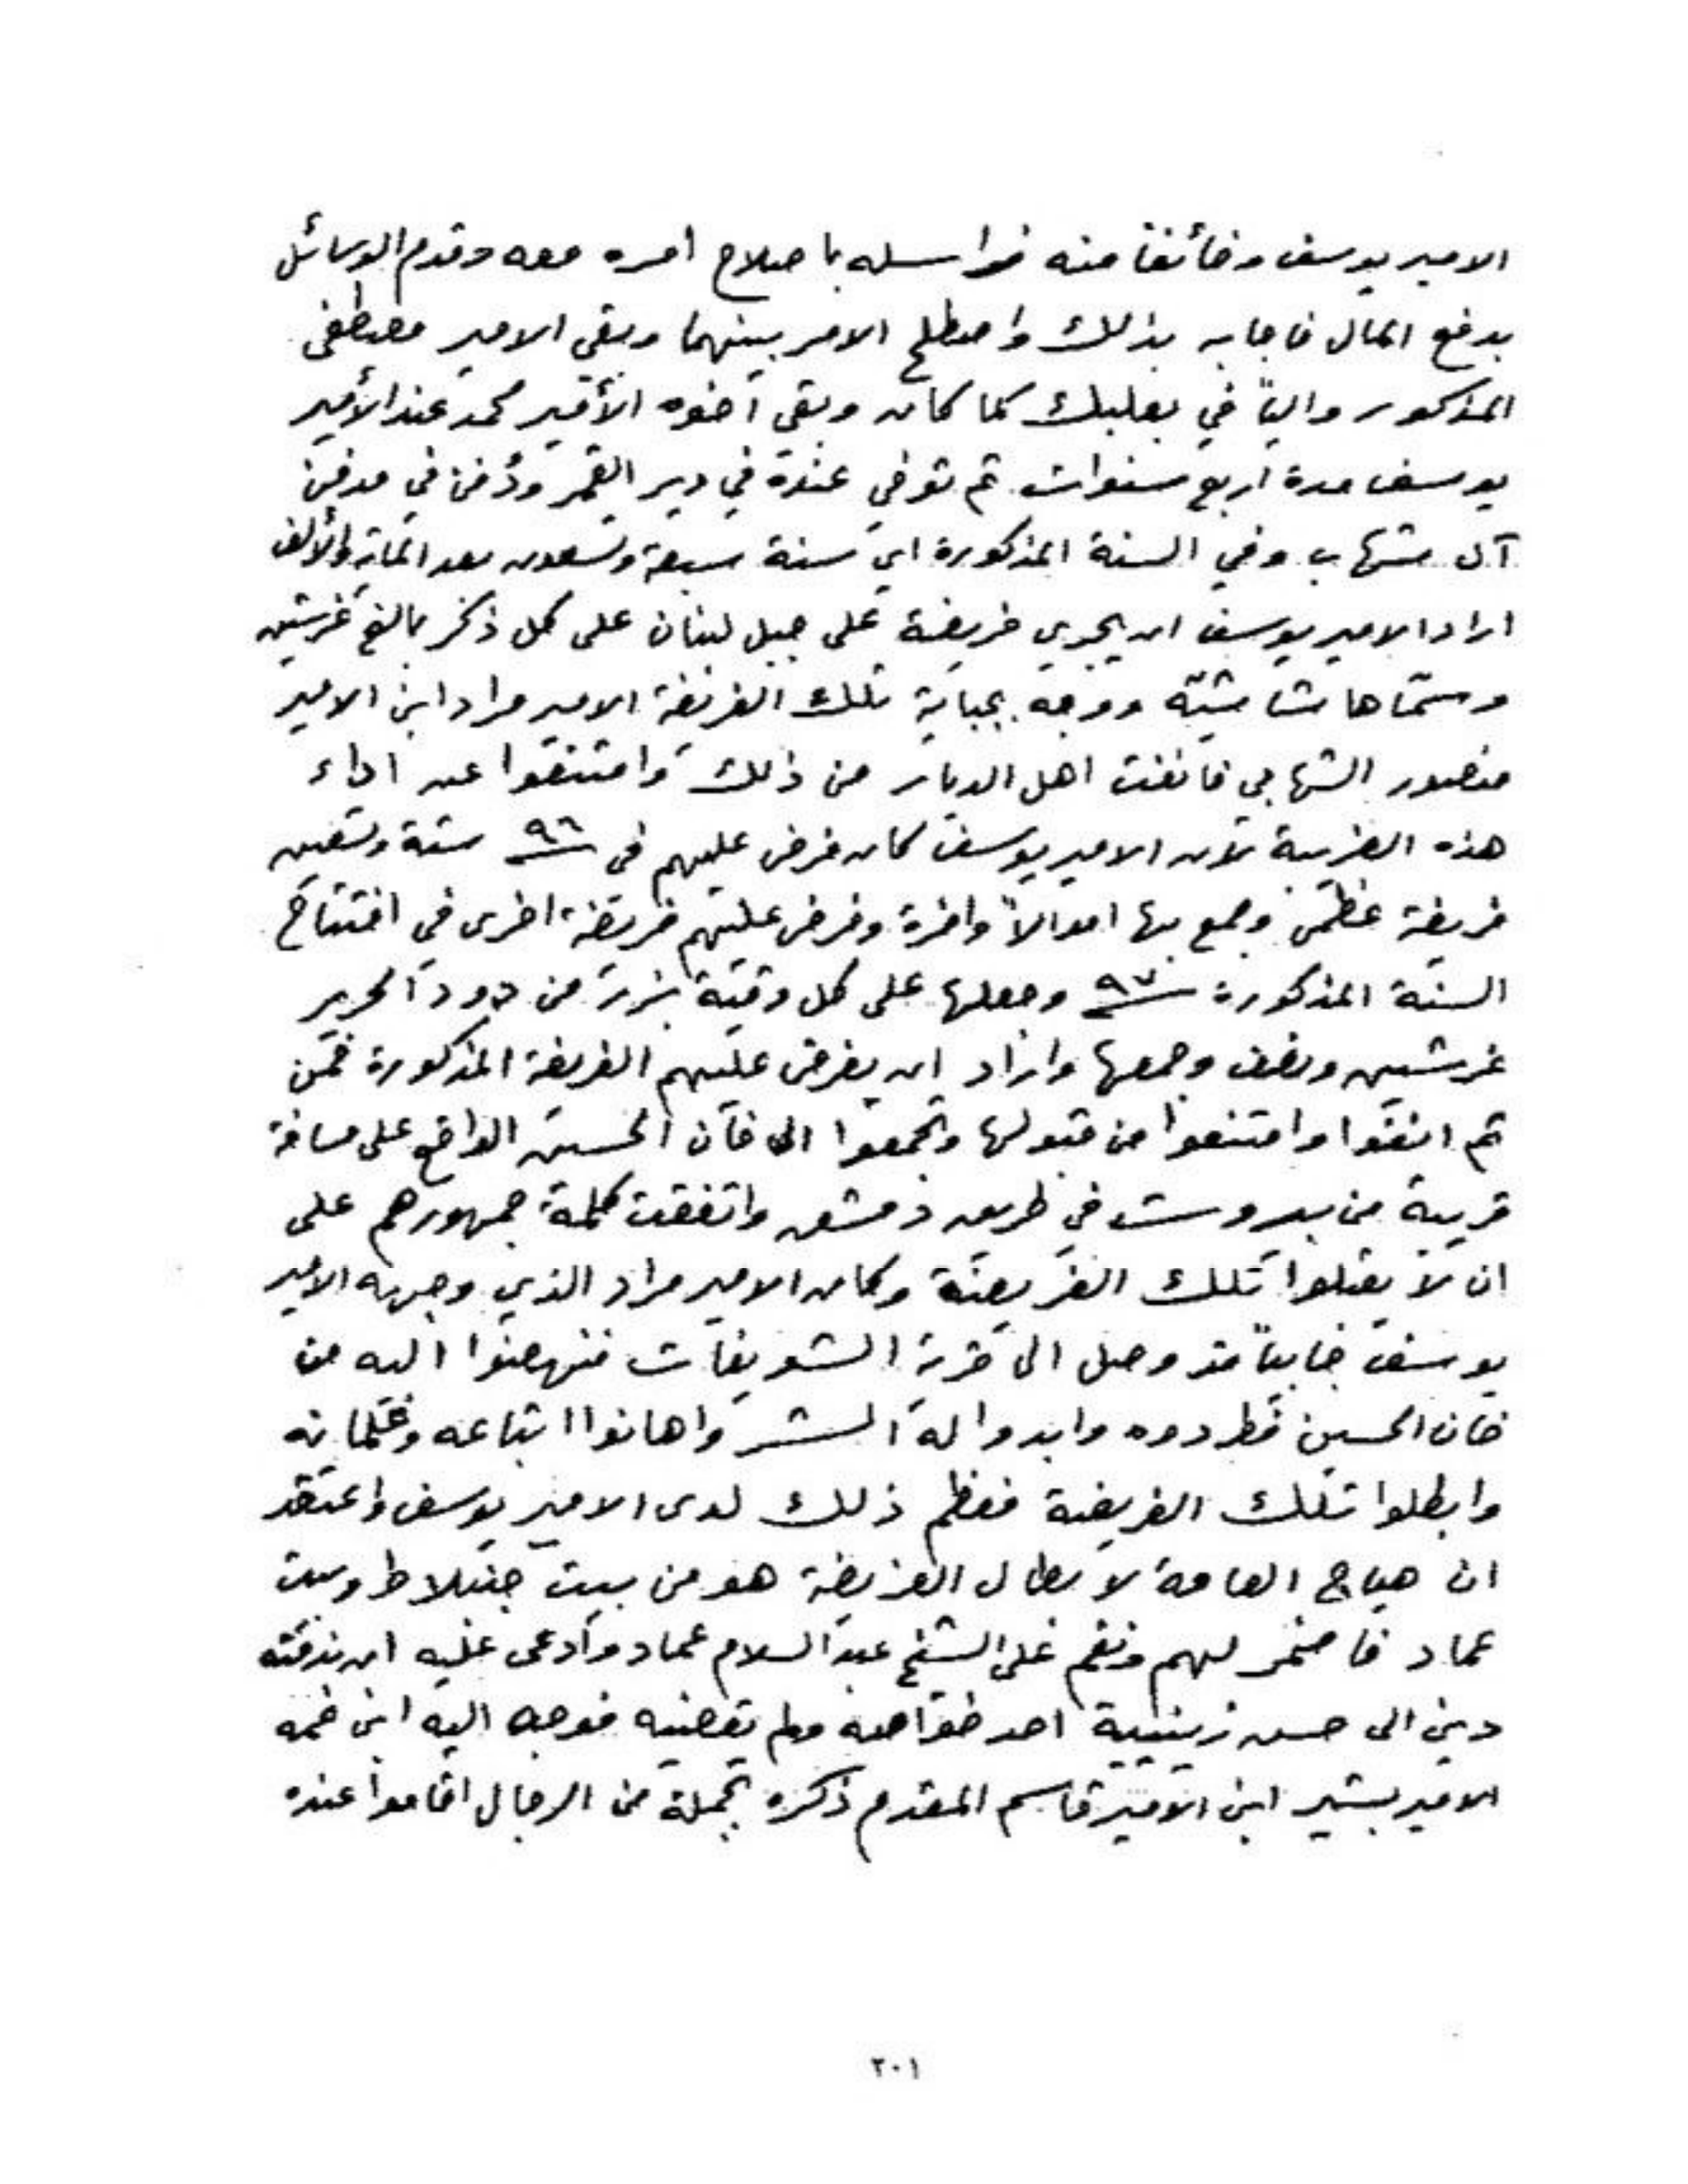 الامير يوسف وخائفاً منه فراسله باصلاح امره معه وقدم الوسائل
بدفع المال فاجابه بذلك واصطلح الامر بينهما وبقي الامير مصطفى
المذكور والياً في بعلبك كما كان وبقي اخوه الأمير محمد عند الأمير
يوسف مدة اربع سنوات ثم توفي عنده في دير القمر ودُفن في مدفن
آل شهاب وفي السنة المذكورة اي سنة سبعة وتسعون بعد الماية والألف
اراد الامير يوسف ان يجري فريضة على جبل لبنان على كل ذكر بالغ غرشين
وسمّاها شاشيّة ووجه بجباية تلك الفريضة الامير مراد ابن الامير
منصور الشهابي فانفت اهل الديار من ذلك وامتنعوا عن اداء
هذه الضريبة لان الامير يوسف كان فرض عليهم في ٩٦ ستة وتسعين
فريضة عظمى وجمع بها اموالاً وافرة وفرض عليهم فريضة اخرى في افتتاح
السنة المذكورة ٩٧ وجعلها على كل وقية بزر من دود الحرير
غرشين ونصف وجمعها واراد ان يفرض عليهم الفريضة المذكورة فمن
ثم انفوا وامتنعوا من قبولها وتجمعوا الى خان الحسين الواقع على مسافة
قريبة من بيروت في طريق دمشق واتفقت كلمة جمهورهم على
ان لا يقبلوا تلك الفريضة وكان الامير مراد الذي وجهه الامير
يوسف جابياً قد وصل الى قرية الشويفات فنهضوا اليه من
خان الحسين فطردوه وابدوا له الشر واهانوا اتباعه وغلمانه
وابطلوا تلك الفريضة فعظم ذلك لدى الامير يوسف واعتقد
ان هياج العامة لابطال الفريضة هو من بيت جنبلاط وبيت
عماد فاضمر لهم ونقم على الشيخ عبد السلام عماد وادعى عليه ان بذمته
دين الى حسن زينية احد خواصه ولم يقضيه فوجه اليه ابن عمه
الامير بشير ابن الامير قاسم المقدم ذكره بجملة من الرجال اقاموا عنده
٢٠١